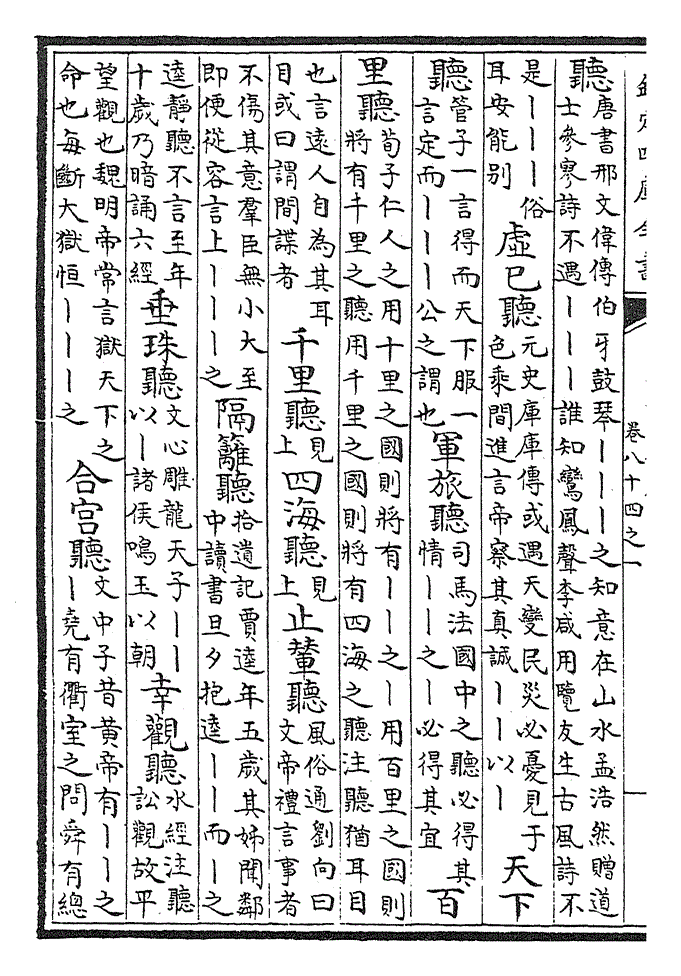 欽定四庫全書
卷八十四之一
聽唐書邢文偉傳伯牙鼓琴丨丨丨之知意在山水孟浩然贈道
士參寥詩不遇丨丨丨誰知鸞鳳聲李咸用覽友生古風詩不
是丨丨丨俗
耳安能别
虛已聽元史庫庫傳或遇天變民災必憂見于
色乘間進言帝察其真誠丨丨以丨
天下
聽管子一言得而天下服一
言定而丨丨丨公之謂也
軍旅聽司馬法國中之聽必得其
情丨丨之丨必得其宜
百
里聽荀子仁人之用十里之國則將有丨丨之丨用百里之國則
將有千里之聽用千里之國則將有四海之聽注聽猶耳目
也言遠人自為其耳
目或曰謂間諜者
千里聽見
上
四海聽見
上
止輦聽風俗通劉向曰
文帝禮言事者
不傷其意羣臣無小大至
即便從容言上丨丨丨之
隔籬聽拾遺記賈逵年五歲其姊聞鄰
中讀書旦夕抱逵丨丨而丨之
逵靜聽不言至年
十歲乃暗誦六經
垂珠聽文心雕龍天子丨丨
以丨諸侯鳴玉以朝
幸觀聽水經注聽
訟觀故平
望觀也魏明帝常言獄天下之
命也每斷大獄恒丨丨丨之
合宫聽文中子昔黃帝有丨丨之
丨堯有衢室之問舜有總